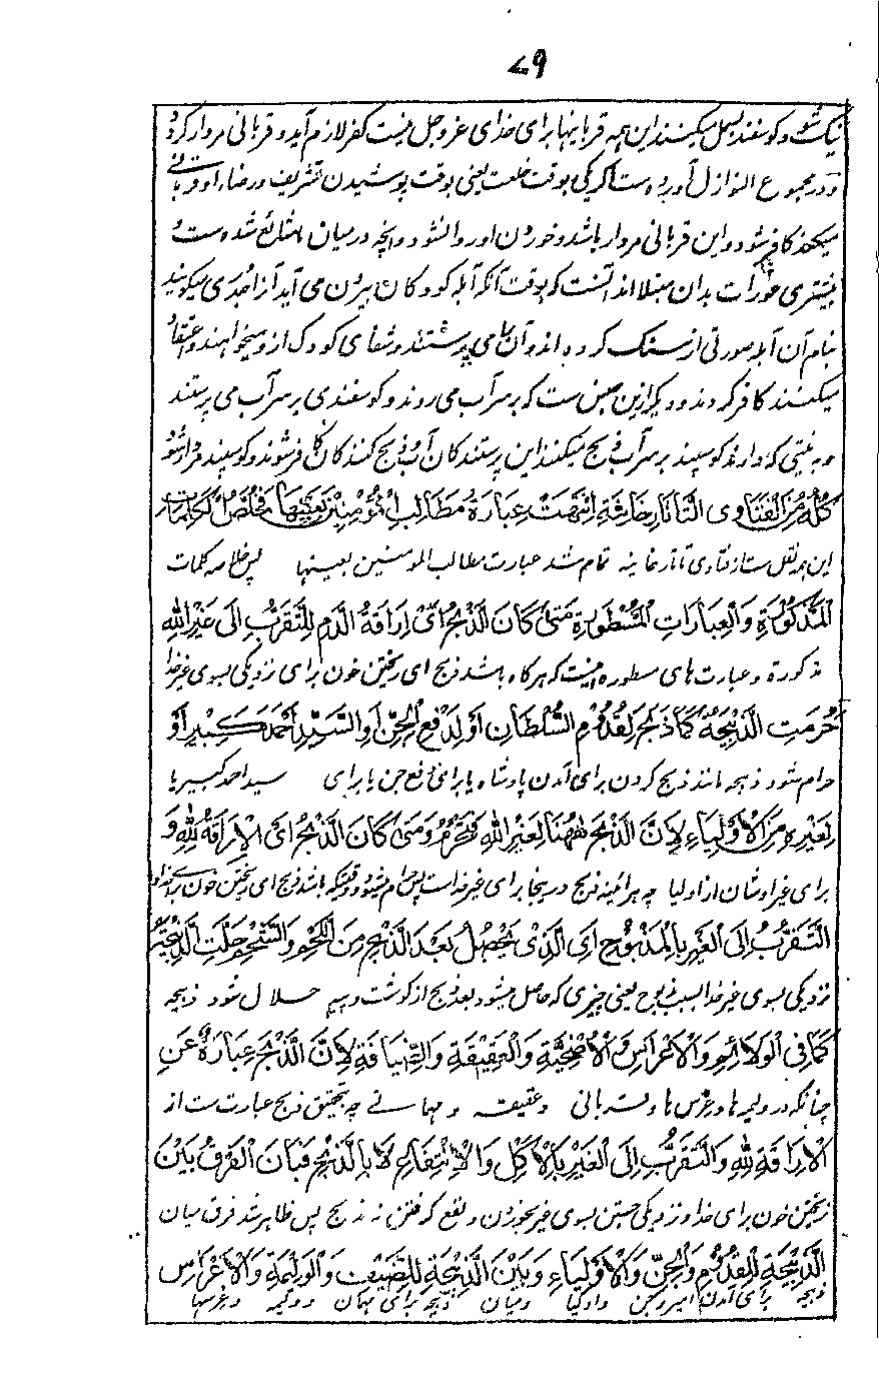 ۷۹
نیک شود و گوسفند بسمل میکنند این همه قربانیها برای خدای عزوجل نیست کفر لازم آید و قربانی مردار گردد
و در مجموع النوازل آورده است اگر یکی بوقت خلعت یعنی بوقت پوشیدن تشریف و رضاء او قربانی
میکند کافر شود و این قربانی مردار باشد و خوردن او روا نشود و آنچه در میان ما شائع شده ست و
بیشتری عورات بدان مبتلا اند آنست که بوقت آنکه آبله کودکان بیرون می آید آنرا جدری میگویند
بنام آن آبله صورتی از سنگ کرده اند و آن را می پرستند و شفای کودک از و میخواهند و اعتقاد
میکنند کافر گردند و دیگر ازین جنس ست که بر سر آب می روند و گوسفندی بر سر آب می پرستند
و به نیتی که دارند گوسپند بر سر آب ذبح میکنند این پرستندکان آب و ذبح کنندکان کافر شوند و گوسپند مردار شود
كُلُّهُ مِنَ الْفَتَاوى التَّاتَارخَانِيَةِ اِنْتَهَتْ عِبَارَةُ مَطَالِبِ الْمُؤْمِنِيْنَ بِعَيْنِهَا فَمُلَخَّصُ الْكَلِمَاتِ
این همه نقل ست از فتاوی تاتارخانیه تمام شد عبارت مطالب المومنین بعینها پس خلاصه کلمات
الْمَذْكُوْرَةِ وَالْعِبَارَاتِ الْمَسْطُوْرَةِ مَتىٰ كَانَ الذَّبْحُ اَىْ اِرَاقَةُ الدَّمِ لِلتَّقَرُّبِ اِلىٰ غَيْرِ اللهِ
مذکورة و عبارت های مسطوره اینست که هرگاه باشد ذبح ای ریختن خون برای نزدیکی بسوی غیر خدا
حُرِمَتِ الذَّبِيْحَةُ كَمَا ذَبَحَ لِقُدُوْمِ السُّلْطَانِ اَوْ لِدَفْعِ الْجِنِّ اَوِ السَّيِّدِ اَحْمَدَ كَبِيْرٍ اَوْ
حرام شود ذبیحه مانند ذبح کردن برای آمدن پادشاه یا برای دفع جن یا برای سید احمد کبیر یا
لِغَيْرِهِ مِنَ الْاَوْلِيَاءِ لِاَنَّ الذَّبْحَ هٰهُنَا لِغَيْرِ اللهِ فَتَحْرُمُ وَمَتىٰ كَانَ الذَّبْحُ اَىِ الْاِرَاقَةُ لِلّٰهِ وَ
برای غیر اوشان از اولیا چه هر آئینه ذبح در ینجا برای غیر خداست پس حرام میشود و وقتیکه باشد ذبح ای ریختن خون برای خدا و
التَّقَرُّبُ اِلَى الْغَيْرِ بِالْمَذْبُوْحِ اَىِ الَّذِىْ يَحْصُلُ بَعْدَ الذَّبْحِ مِنَ اللَّحْمِ وَالشَّحْمِ حَلَّتِ الذَّبِيْحَةُ
نزدیکی بسوی غیر خدا بسبب مذبوح یعنی چیزی که حاصل میشود بعد ذبح از گوشت و پیه حلال شود ذبیحه
كَمَا فِى الْوَلَائِمِ وَالْاَعْرَاسِ وَالْاُضْحِيَّةِ وَالْعَقِيْقَةِ وَالضِّيَافَةِ لِاَنَّ الذَّبْحَ عِبَارَةٌ عَنِ
چنانکه در ولیمه ها و عرس ها و قربانی و عقیقه و مهمانے چه بتحقیق ذبح عبارت ست از
الْاِرَاقَةِ لِلّٰهِ وَالتَّقَرُّبُ اِلَى الْغَيْرِ بِالْاَكْلِ وَالْاِنْتِفَاعِ لَا بِالذَّبْحِ فَبَانَ الْفَرْقُ بَيْنَ
ریختن خون برای خدا و نزدیکی جستن بسوی غیر بخوردن و نفع گرفتن نه بذبح پس ظاهر شد فرق میان
الذَّبِيْحَةِ لِلْقُدُوْمِ وَالْجِنِّ وَالْاَوْلِيَاءِ وَبَيْنَ الذَّبِيْحَةِ لِلضَّيْفِ وَالْوَلِيْمَةِ وَالْاَعْرَاسِ
ذبیحه برای آمدن امیر و جن و اولیا و میان ذبیحه برای مهمان و ولیمه و عرسها